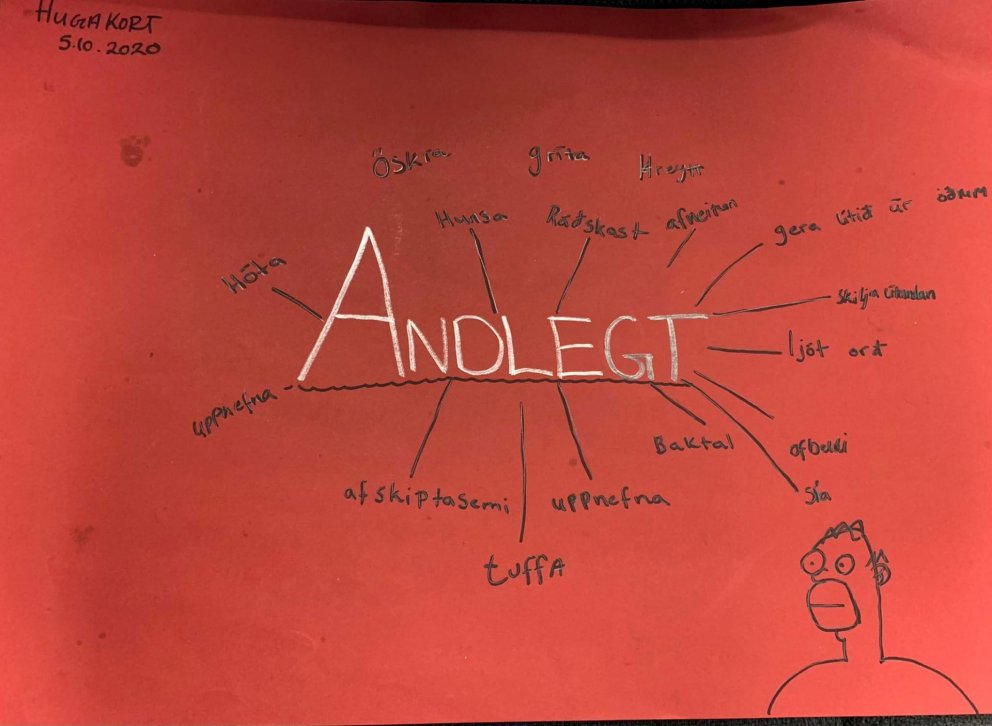 HUGAKORT
5.10.2020
Öskra
gríta
Hreytt
Hunsa
Ráðskast
afneitun
gera lítið úr öðrum
Hóta
skilja útundan
ANDLEGT
ljót orð
uppnefna
Baktal
ofbeldi
afskiptasemi
uppnefna
slá
tuffA